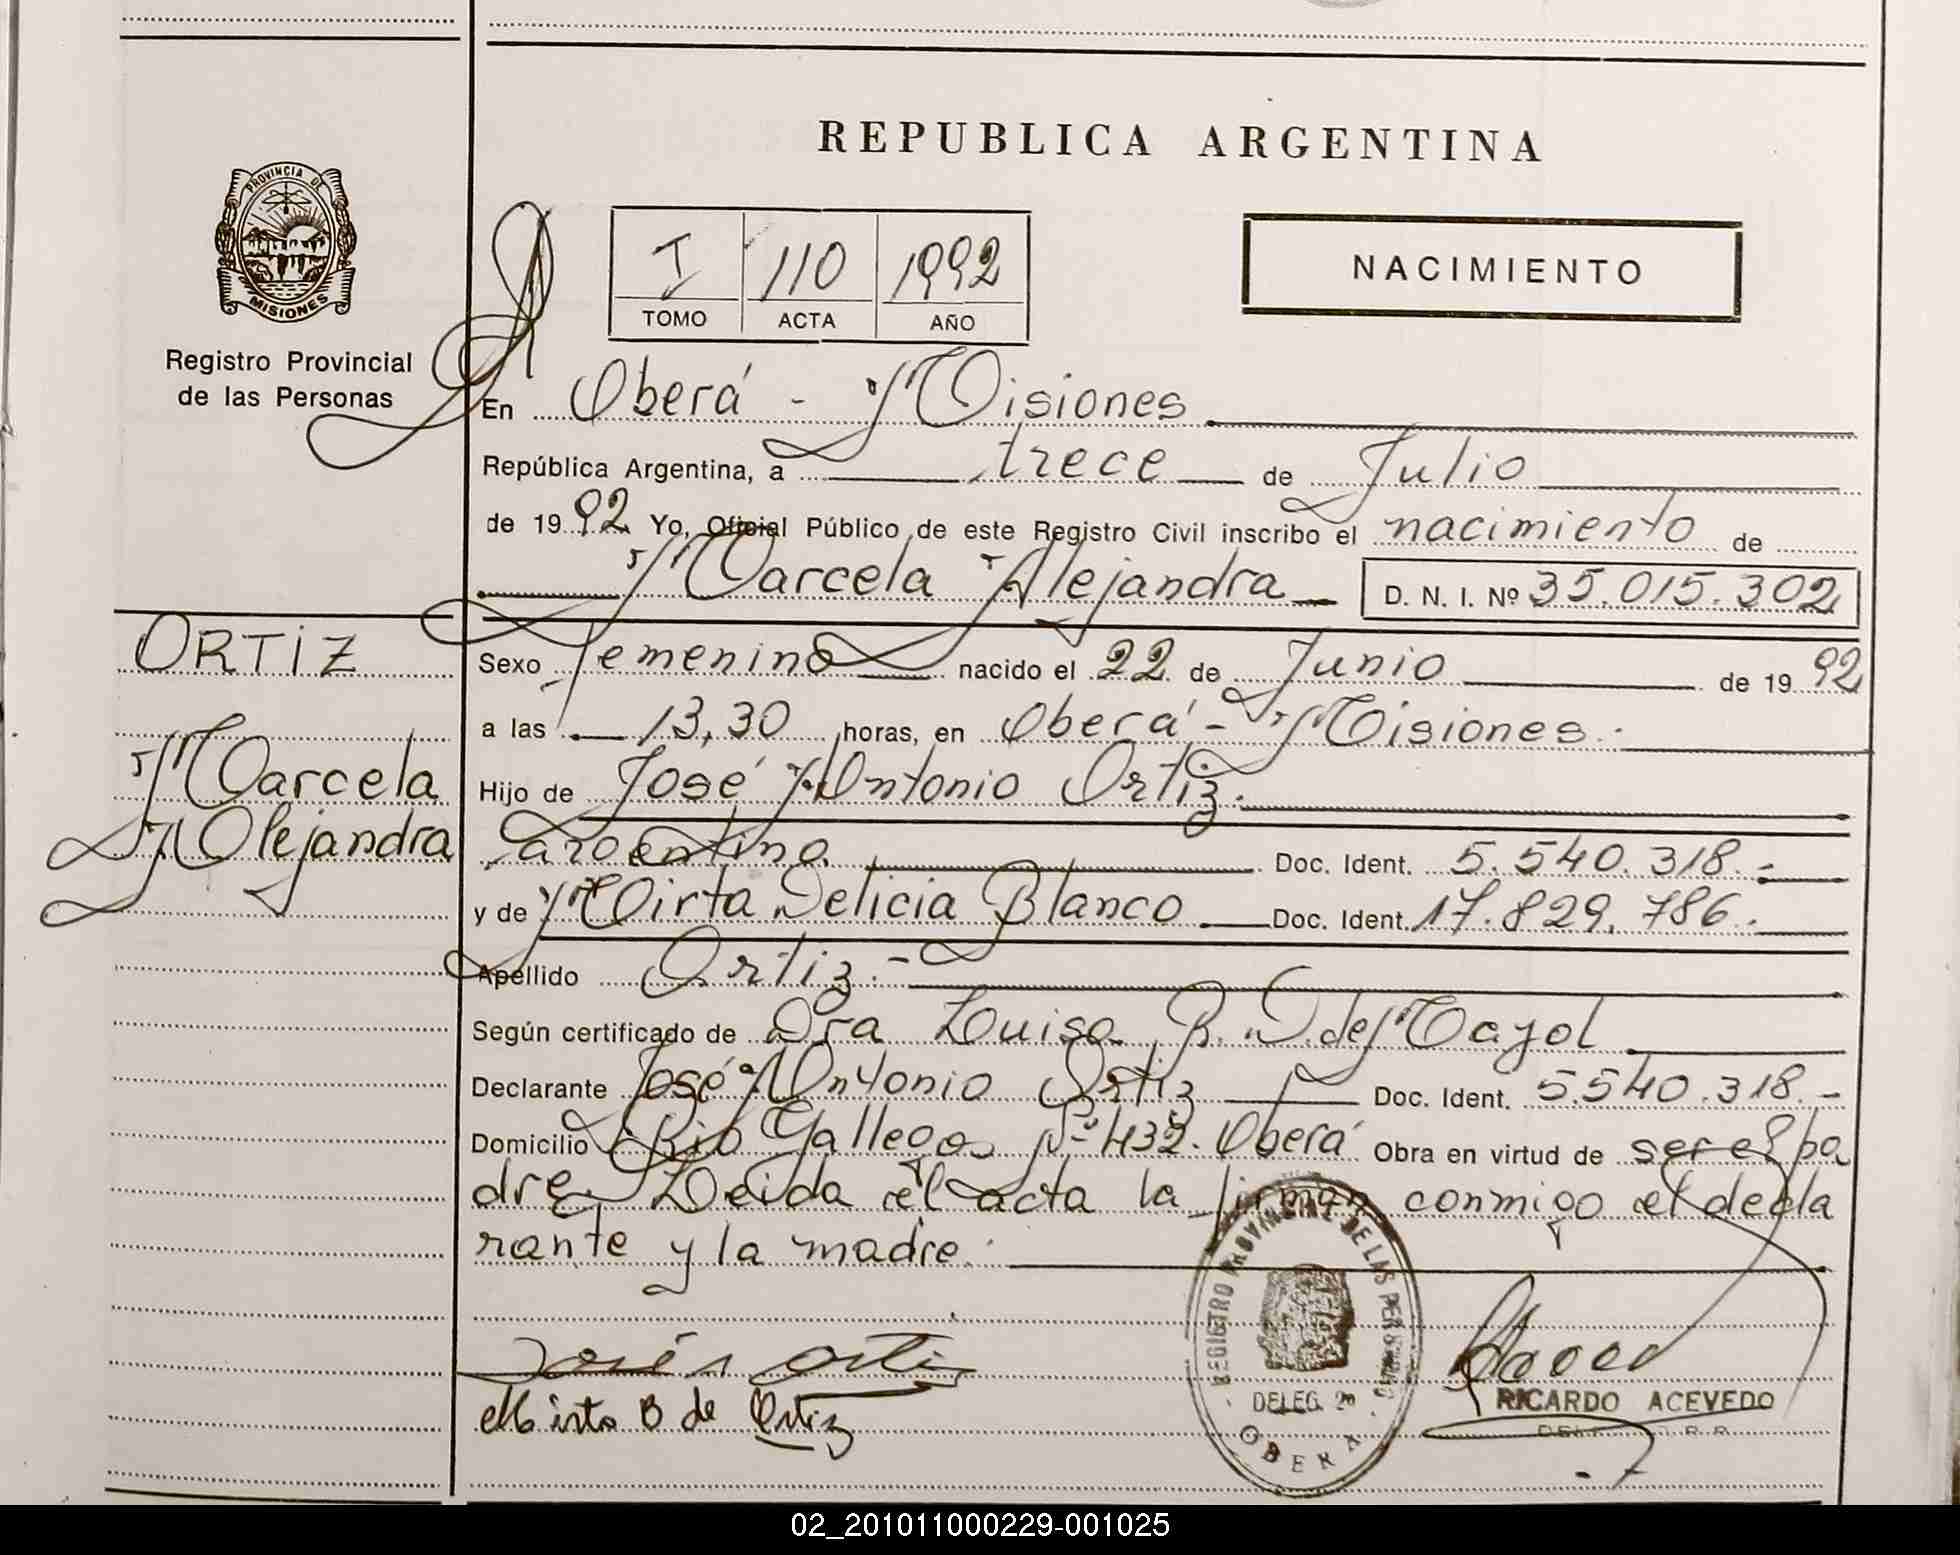 REPUBLICA ARGENTINA
PROVINCIA DE
MISIONES
Registro Provincial
de las Personas
I 110 1992
TOMO ACTA AÑO
NACIMIENTO
En Oberá - Misiones
República Argentina, a trece de Julio
de 1992 Yo, Oficial Público de este Registro Civil inscribo el nacimiento de
Marcela Alejandra D. N. I. Nº 35.015.302
ORTIZ
Marcela
Alejandra
Sexo femenino nacido el 22 de Junio de 1992
a las 13,30 horas, en Oberá - Misiones.
Hijo de José Antonio Ortiz.
argentino Doc. Ident. 5.540.318.-
y de Mirta Delicia Blanco Doc. Ident. 17.829.786.
Apellido Ortiz.-
Según certificado de Dra Luisa B. D. de Mayol
Declarante José Antonio Ortiz Doc. Ident. 5.540.318.-
Domicilio Rio Gallegos Nº 432. Oberá Obra en virtud de ser el pa
dre. Leida el acta la firman conmigo el decla
rante y la madre.
José A Ortiz
Mirta B de Ortiz
REGISTRO PROVINCIAL DE LAS PERSONAS
DELEG. 20
OBERA
RICARDO ACEVEDO
02_201011000229-001025